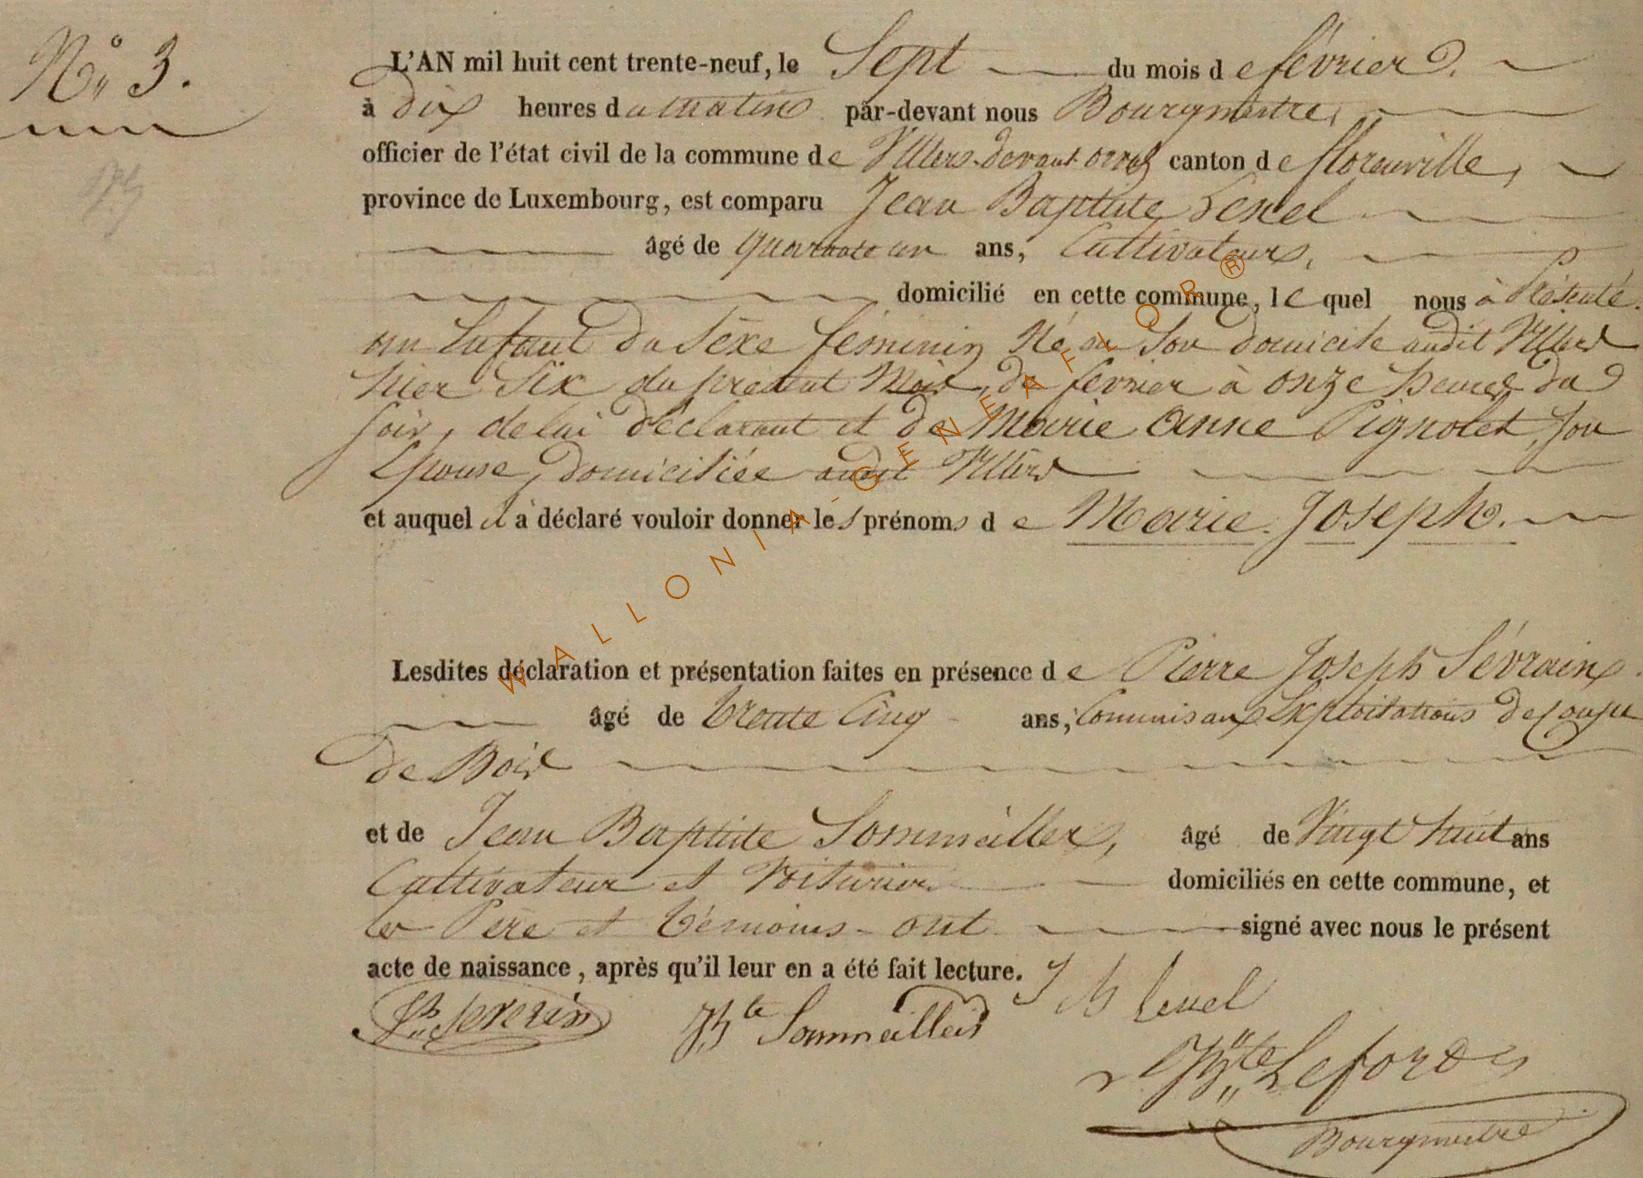 N° 3.
L'AN mil huit cent trente-neuf, le Sept du mois de février
à dix heures du matin par-devant nous Bourgmestre,
officier de l'état civil de la commune de Villers-devant-orval canton de florenville,
province de Luxembourg, est comparu Jean Baptiste Lexel
âgé de quarante un ans, Cultivateur,
domicilié en cette commune, lequel nous à Présenté
un Enfant du Sexe féminin Né en Son domicile audit Villers
hier Six du présent Mois de février à onze heures du
soir, de lui déclarant et de Marie Anne Pignolet, son
Epouse, domiciliée audit Villers
et auquel il a déclaré vouloir donner les prénoms de Marie Joseph.
Lesdites déclaration et présentation faites en présence de Pierre Joseph Sévrain
âgé de trente Cinq ans, Commis aux Exploitations de Coupe
de Bois
et de Jean Baptiste Sommeiller, âgé de Vingt huit ans
Cultivateur et Voiturier domiciliés en cette commune, et
les Père et témoins ont signé avec nous le présent
acte de naissance, après qu'il leur en a été fait lecture.
severin JBte Sommeillier
Bourgmestre
WALLONIA-GENEAFLOR®